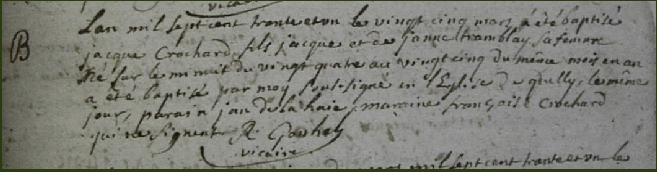 vicaire
B
L'an mil sept cent trante et un le vingt cinq mars a été baptisé
jacque Crochard, fils jacque et de janne tramblay sa femme
Né sur le minuit du vingt quatre au vingt cinq du même mois en an
a été baptisé par moy soussigné en l'Eglise de le même
jour, parain jan de la haie, maraine françoise Crochard
qui ne signent
vicaire
mil sept cent trante et un le